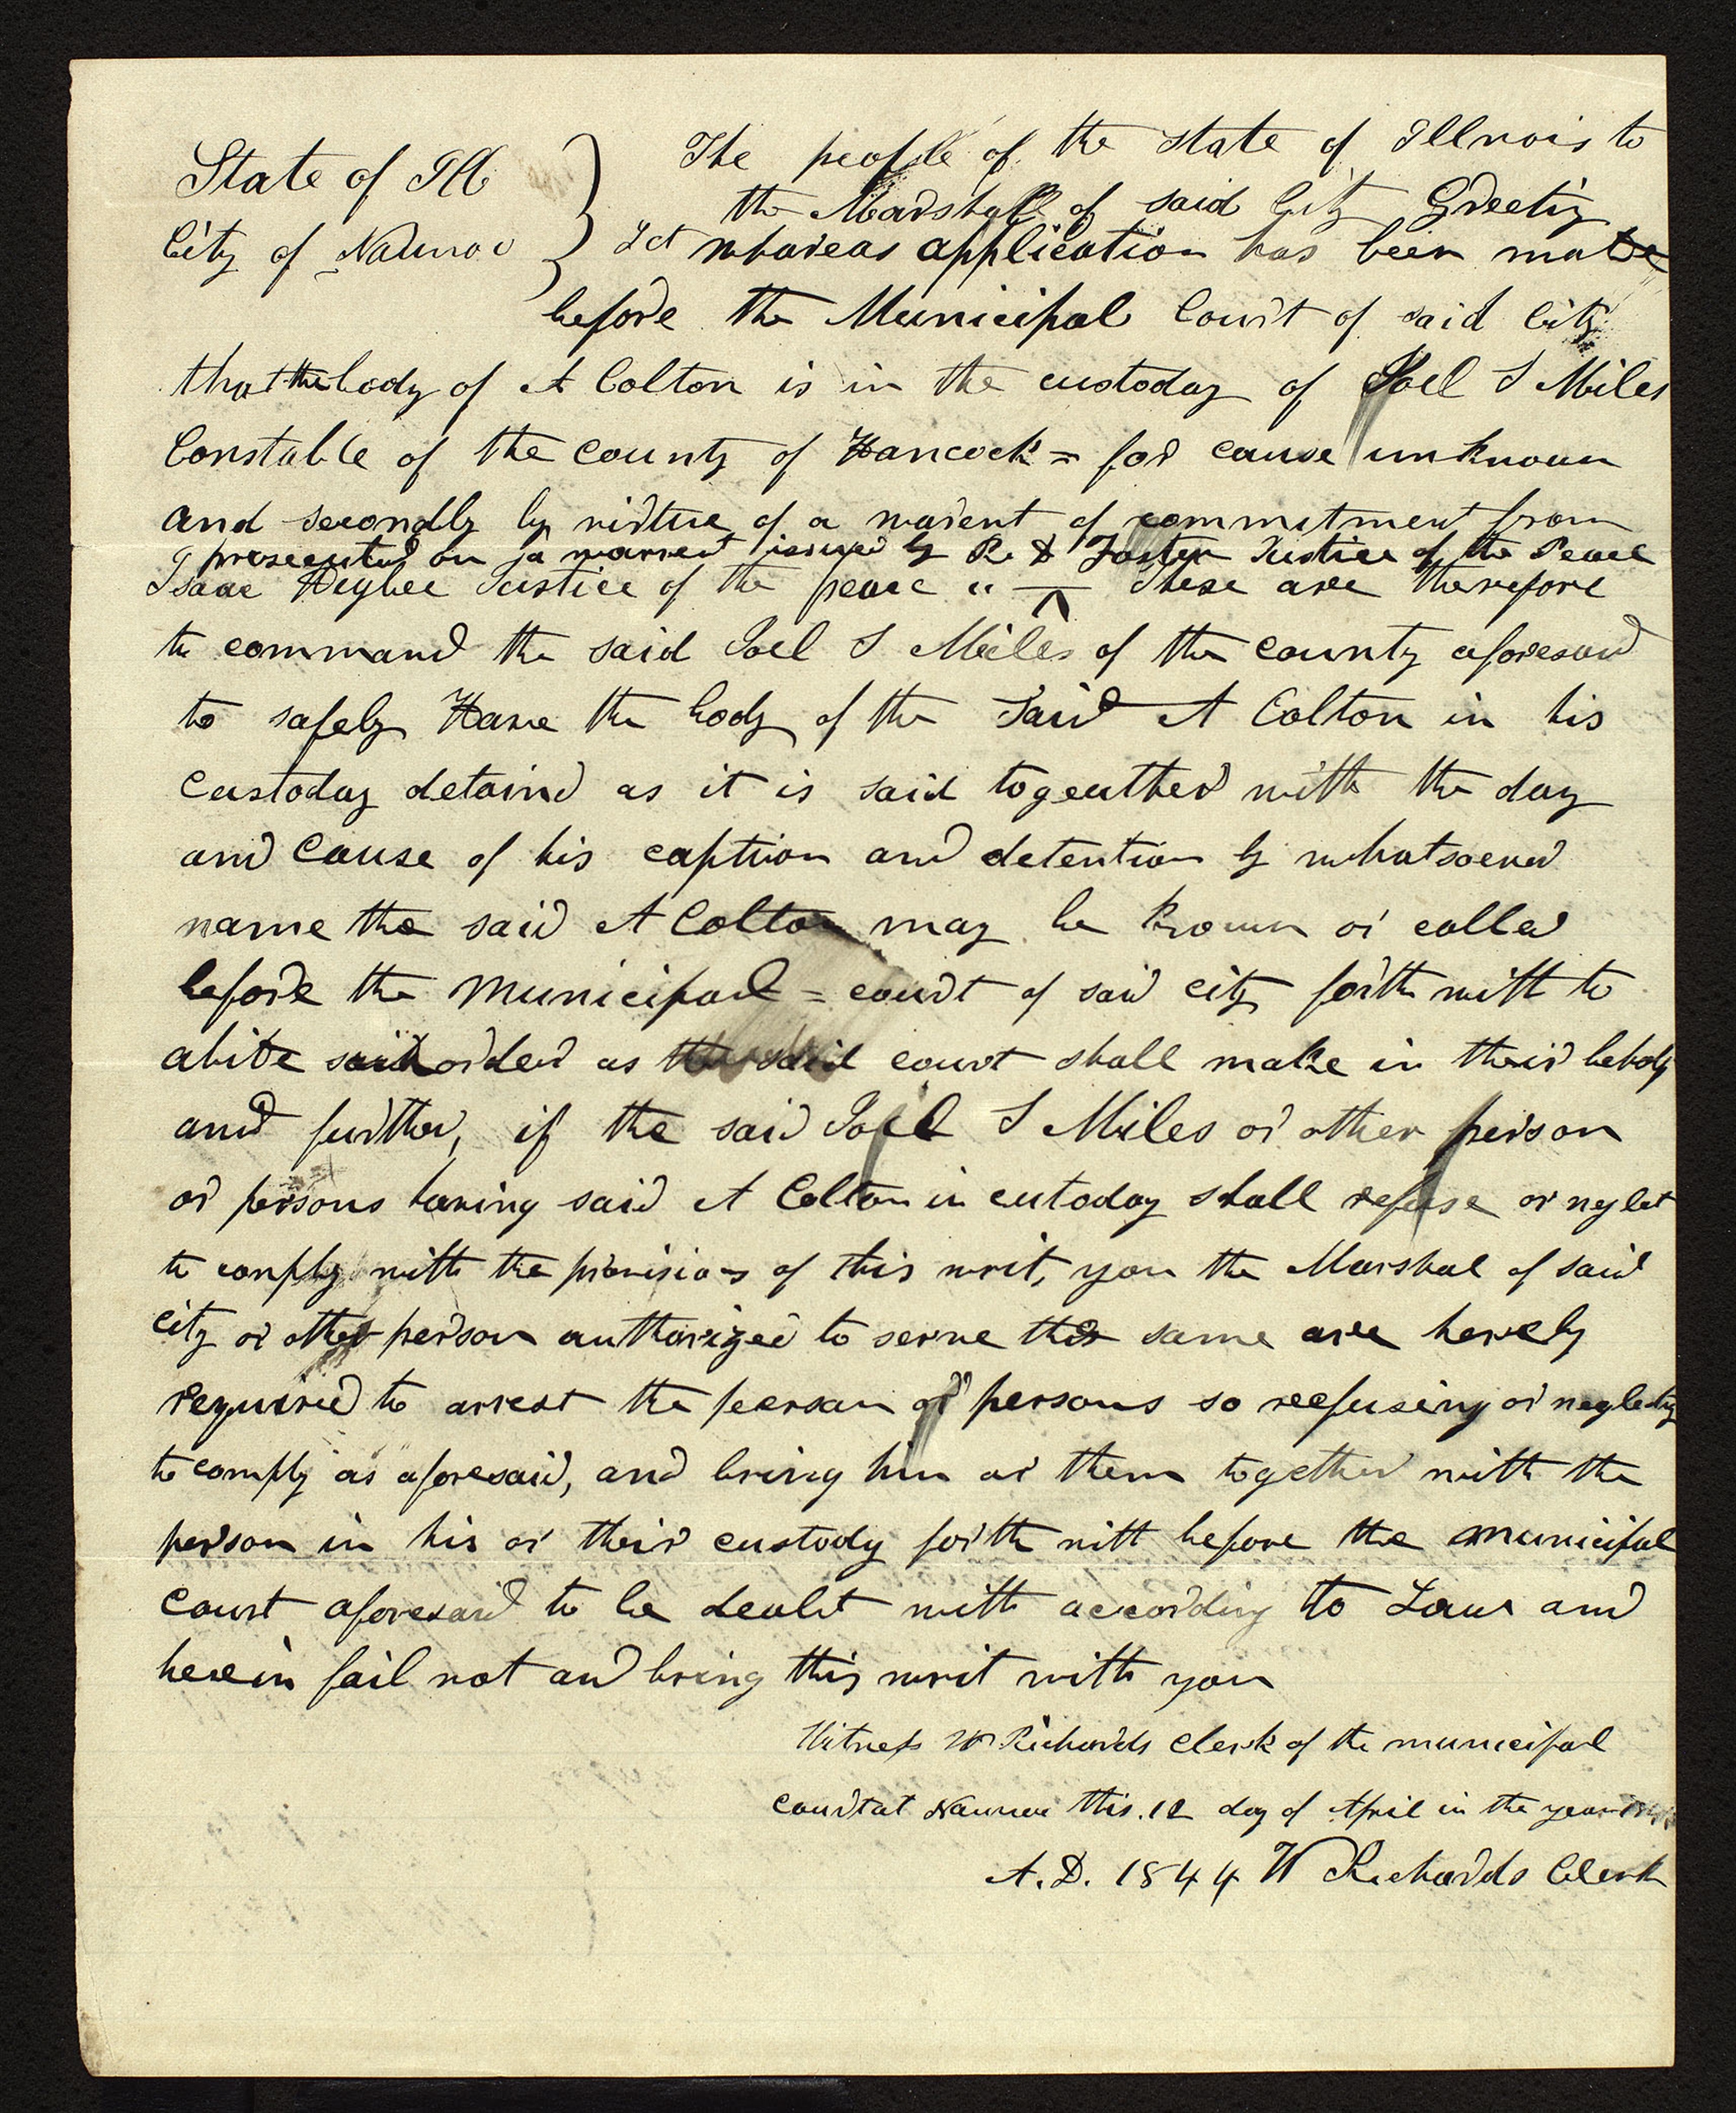 State of Ill
City of Nauvoo } Sct
The people of the State of Illnois to
the Marshall of said City Greetig
whareas application has been made
before the Municipal Court of said City
that the body of A Colton is in the custoday of Joel S Miles
Constable of the county of Hancock = for cause unknown
and secondly by virtue of a warent of commitment from
prosecuted on a warrent issued by R. D Foster Justice of the Peace
Isaac Higbee Justice of the peace " — ^ These are therefore
to command the said Joel S Miles of the county aforesaid
to safely Have the body of the said A Colton in his
custoday detaind as it is said togeather with the day
and cause of his caption and detention by whatsoever
name the said A Colton may be known or called
before the Municipal = court of said city forth with to
abide said order as the said court shall make in their behalf
and further, if the said Joel S Miles or other person
or persons having said A Colton in cutoday shall refuse or neglet
to comply with the provisions of this writ, you the Marshal of said
city or other person authorized to serve the same are hereby
required to arrest the peersan or persons so reefusing or neglecting
to comply as aforesaid, and bring him or them together with the
person in his or their custody forth with before the municipal
court aforesaid to be dealt with according to Law and
herein fail not and bring this writ with you
Witness W Richards Clerk of the municipal
court at Nauvoo this. 12 day of April in the year
A. D. 1844 W Richards Clerk